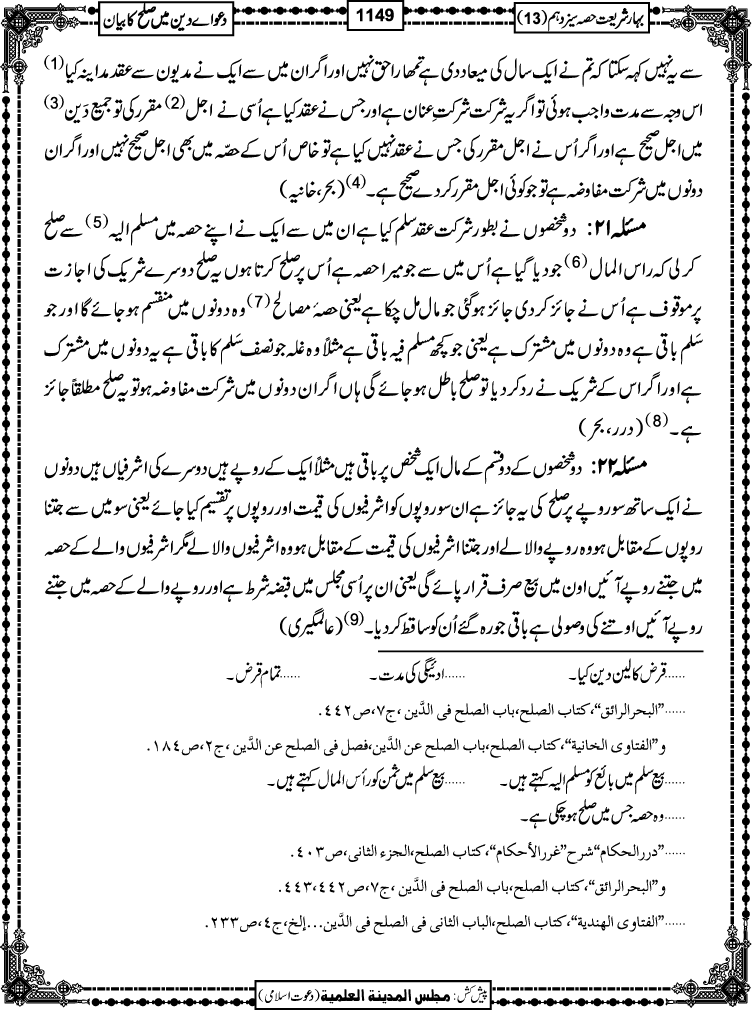 بہار شریعت حصہ سیزدہم (13)
1149
دعواے دین میں صلح کا بیان
سے یہ نہیں کہہ سکتا کہ تم نے ایک سال کی میعاد دی ہے تمھارا حق نہیں اور اگر ان میں سے ایک نے مدیون سے عقد مداینہ کیا(1)
اس وجہ سے مدت واجب ہوئی تو اگر یہ شرکت شرکتِ عنان ہے اور جس نے عقد کیا ہے اُسی نے اجل(2) مقرر کی تو جمیع دَین(3)
میں اجل صحیح ہے اور اگر اُس نے اجل مقرر کی جس نے عقد نہیں کیا ہے تو خاص اُس کے حصّہ میں بھی اجل صحیح نہیں اور اگر ان
دونوں میں شرکت مفاوضہ ہے تو جو کوئی اجل مقرر کردے صحیح ہے۔(4) (بحر، خانیہ)
مسئلہ ۲۱: دو شخصوں نے بطور شرکت عقد سلم کیا ہے ان میں سے ایک نے اپنے حصہ میں مسلم الیہ(5) سے صلح
کرلی کہ راس المال(6) جو دیا گیا ہے اُس میں سے جو میرا حصہ ہے اُس پر صلح کرتا ہوں یہ صلح دوسرے شریک کی اجازت
پر موقوف ہے اُس نے جائز کر دی جائز ہوگئی جو مال مل چکا ہے یعنی حصۂ مصالح(7) وہ دونوں میں منقسم ہو جائے گا اور جو
سَلم باقی ہے وہ دونوں میں مشترک ہے یعنی جو کچھ مسلم فیہ باقی ہے مثلاً وہ غلہ جو نصف سَلم کا باقی ہے یہ دونوں میں مشترک
ہے اور اگر اس کے شریک نے رد کر دیا تو صلح باطل ہو جائے گی ہاں اگر ان دونوں میں شرکت مفاوضہ ہو تو یہ صلح مطلقاً جائز
ہے۔(8) (درر، بحر)
مسئلہ ۲۲: دو شخصوں کے دو قسم کے مال ایک شخص پر باقی ہیں مثلاً ایک کے روپے ہیں دوسرے کی اشرفیاں ہیں دونوں
نے ایک ساتھ سو روپے پر صلح کی یہ جائز ہے ان سو روپوں کو اشرفیوں کی قیمت اور روپوں پر تقسیم کیا جائے یعنی سو میں سے جتنا
روپوں کے مقابل ہو وہ روپے والا لے اور جتنا اشرفیوں کی قیمت کے مقابل ہو وہ اشرفیوں والا لے مگر اشرفیوں والے کے حصہ
میں جتنے روپے آئیں اون میں بیع صرف قرار پائے گی یعنی ان پر اُسی مجلس میں قبضہ شرط ہے اور روپے والے کے حصہ میں جتنے
روپے آئیں اوتنے کی وصولی ہے باقی جو رہ گئے اُن کو ساقط کر دیا۔(9) (عالمگیری)
......قرض کا لین دین کیا۔ ......ادئیگی کی مدت۔ ......تمام قرض۔
......”البحرالرائق“، کتاب الصلح، باب الصلح فی الدَّین، ج۷، ص۴۴۲.
و”الفتاوی الخانیة“، کتاب الصلح، باب الصلح عن الدَّین، فصل فی الصلح عن الدَّین، ج۲، ص۱۸۴.
......بیع سلم میں بائع کو مسلم الیہ کہتے ہیں۔ ......بیع سلم میں ثمن کو رأس المال کہتے ہیں۔
......وہ حصہ جس میں صلح ہو چکی ہے۔
......”دررالحکام“ شرح ”غررالأحکام“، کتاب الصلح، الجزء الثانی، ص۴۰۳.
و”البحرالرائق“، کتاب الصلح، باب الصلح فی الدَّین، ج۷، ص۴۴۲، ۴۴۳.
......”الفتاوی الهندیة“، کتاب الصلح، الباب الثانی فی الصلح فی الدَّین...إلخ، ج۴، ص۲۳۳.
پیش کش: مجلس المدینة العلمیة (دعوت اسلامی)